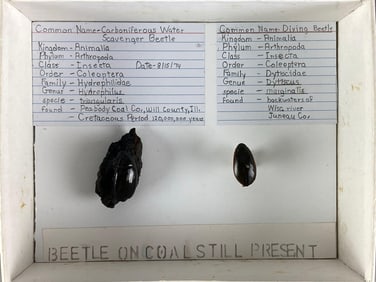 Common Name-Carboniferous Water
Scavenger Beetle
Kingdom-Animalia
Phylum-Arthropoda
Class - Insecta Date-8/15/74
Order - Coleoptera
Family-Hydrophilidae
Genus-Hydrophilus
specie - triangularis
found - Peabody Coal Co., Will County, Ill.
- Cretaceous Period 120,000,000 years
Common Name: Diving Beetle
Kingdom - Animalia
Phylum - Arthropoda
Class - Insecta
Order - Coleoptera
Family - Dytiscidae
Genus - Dytiscus
specie - marginalis
found - backwaters of
Wisc. river
Juneau Co.
BEETLE ON COAL STILL PRESENT